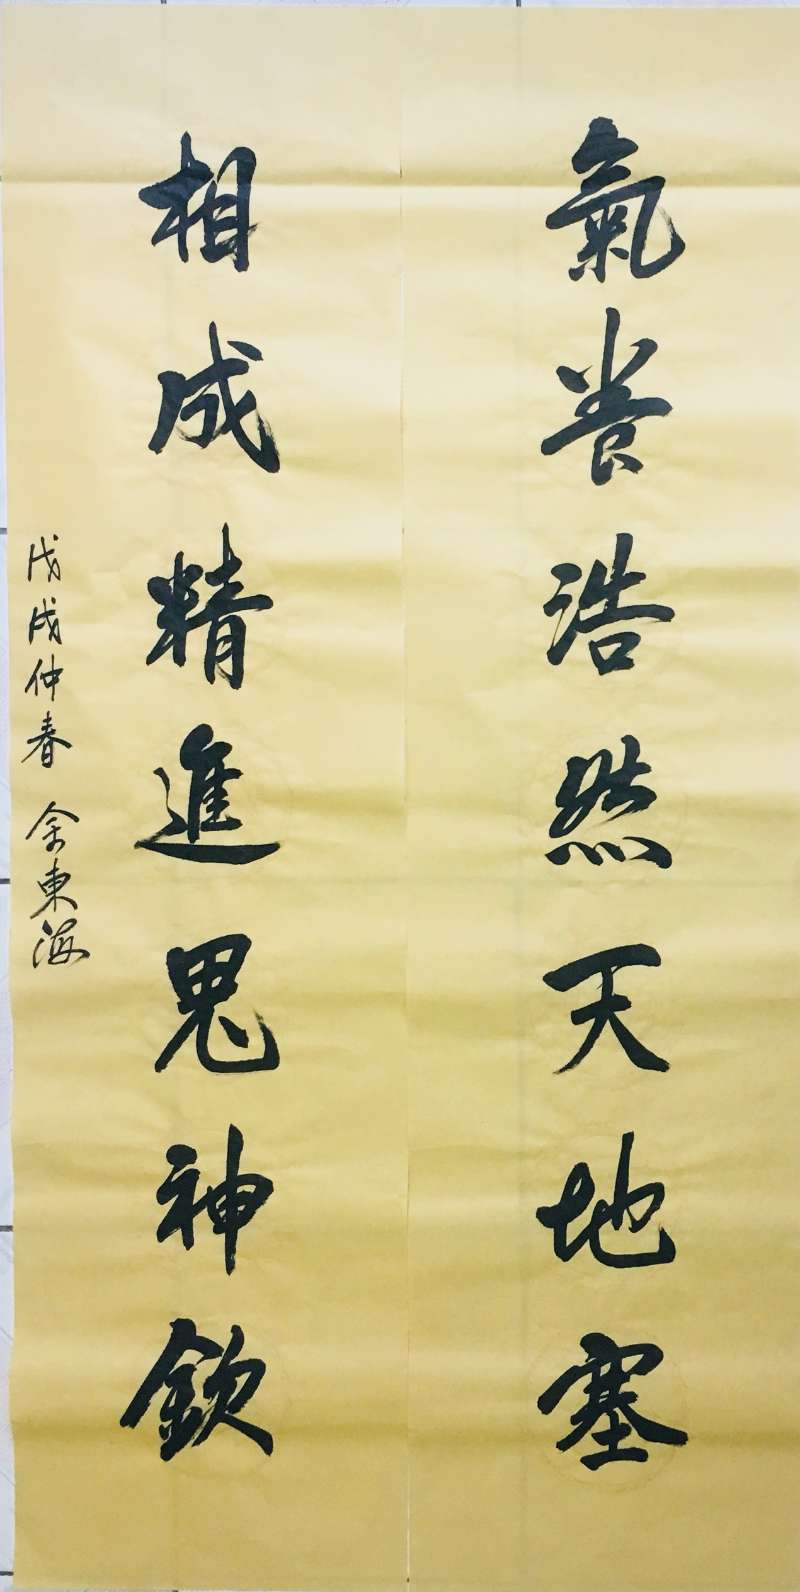 氣養浩然天地塞
相成精進鬼神欽
戊戌仲春 余東海